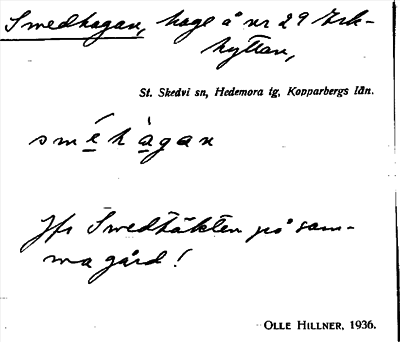 Smedhagan, hage å nr 29 Irk-
hyttan,
St. Skedvi sn, Hedemora tg, Kopparbergs län.
smé̱hà̱gan
Jfr Smedtäkten på sam-
ma gård!
OLLE HILLNER, 1936.